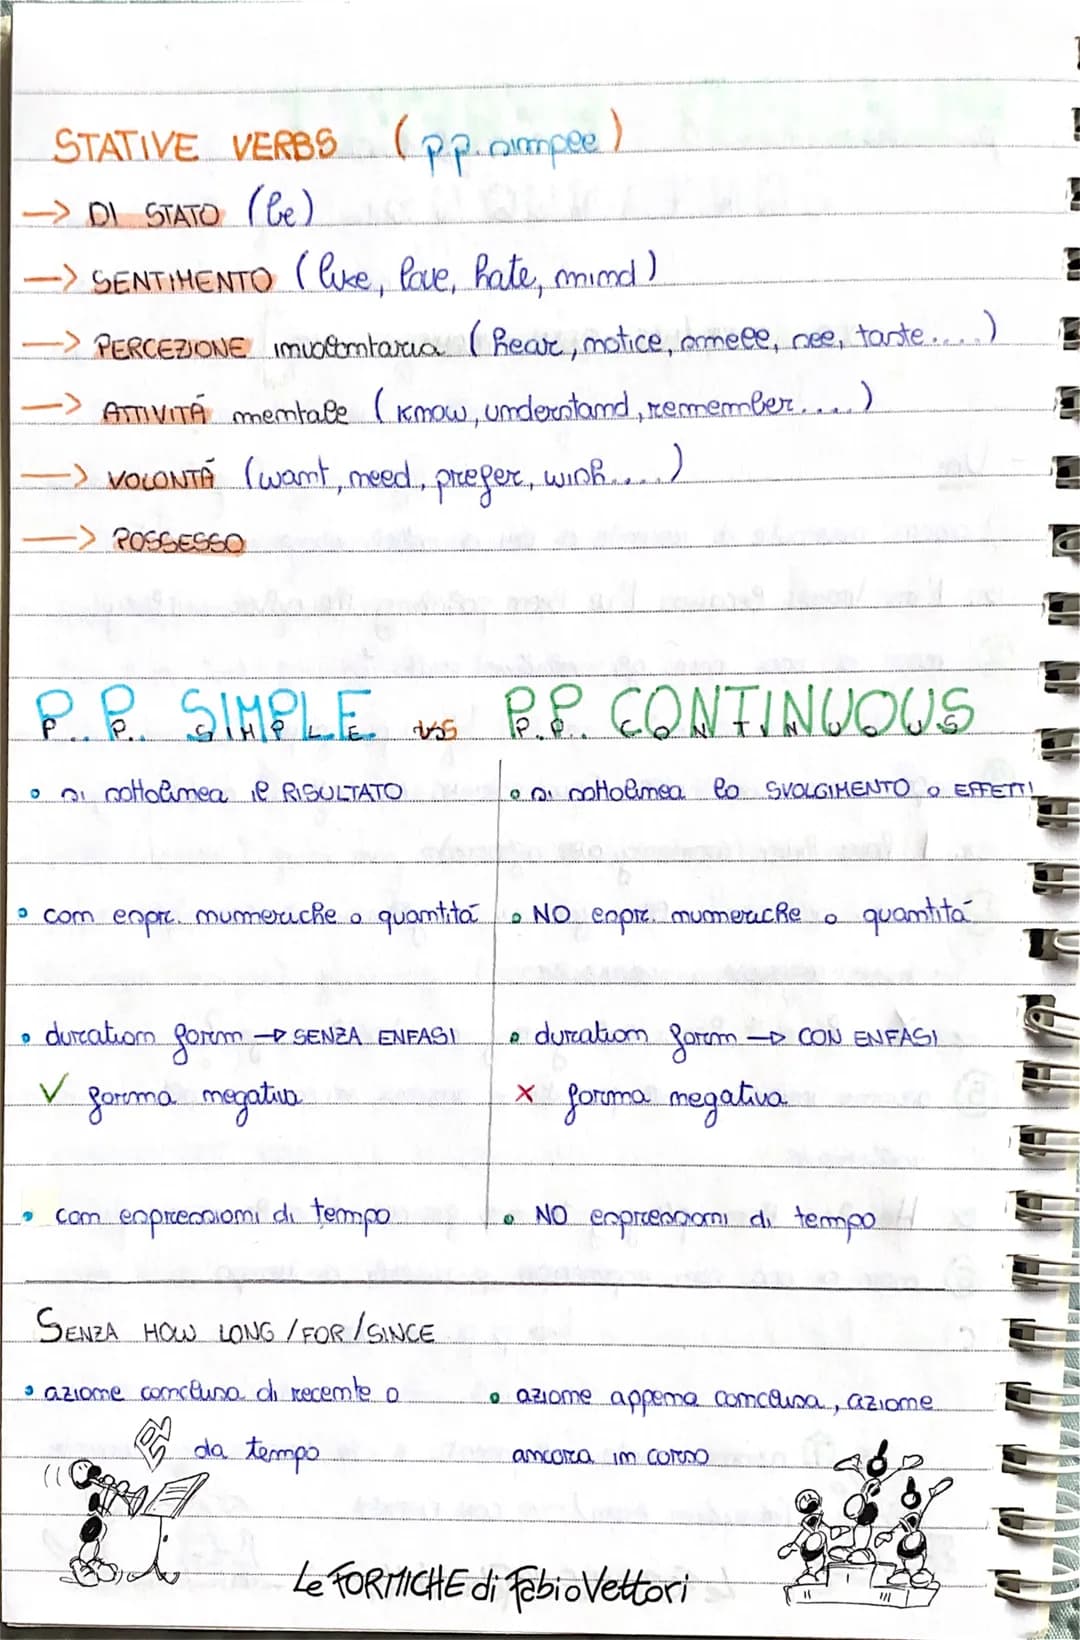 STATIVE VERBS (p.p. simple)
-> DI STATO (be)
-> SENTIMENTO (like, love, hate, mind)
-> PERCEZIONE involontaria (hear, notice, smell, see, taste....)
-> ATTIVITÁ mentale (know, understand, remember....)
-> VOLONTÁ (want, need, prefer, wish....)
-> POSSESSO
P.P. SIMPLE vs P.P. CONTINUOUS
• si sottolinea il RISULTATO
• si sottolinea lo SVOLGIMENTO o EFFETTI
• con espr. numeriche o quantitá
• NO espr. numeriche o quantitá
• duration form -> SENZA ENFASI
• duration form -> CON ENFASI
✓ forma negativa
x forma negativa
• con espressioni di tempo
• NO espressioni di tempo
SENZA HOW LONG / FOR / SINCE
• azione conclusa di recente o
da tempo
• azione appena conclusa, azione
ancora in corso
Le FORMICHE di Fabio Vettori